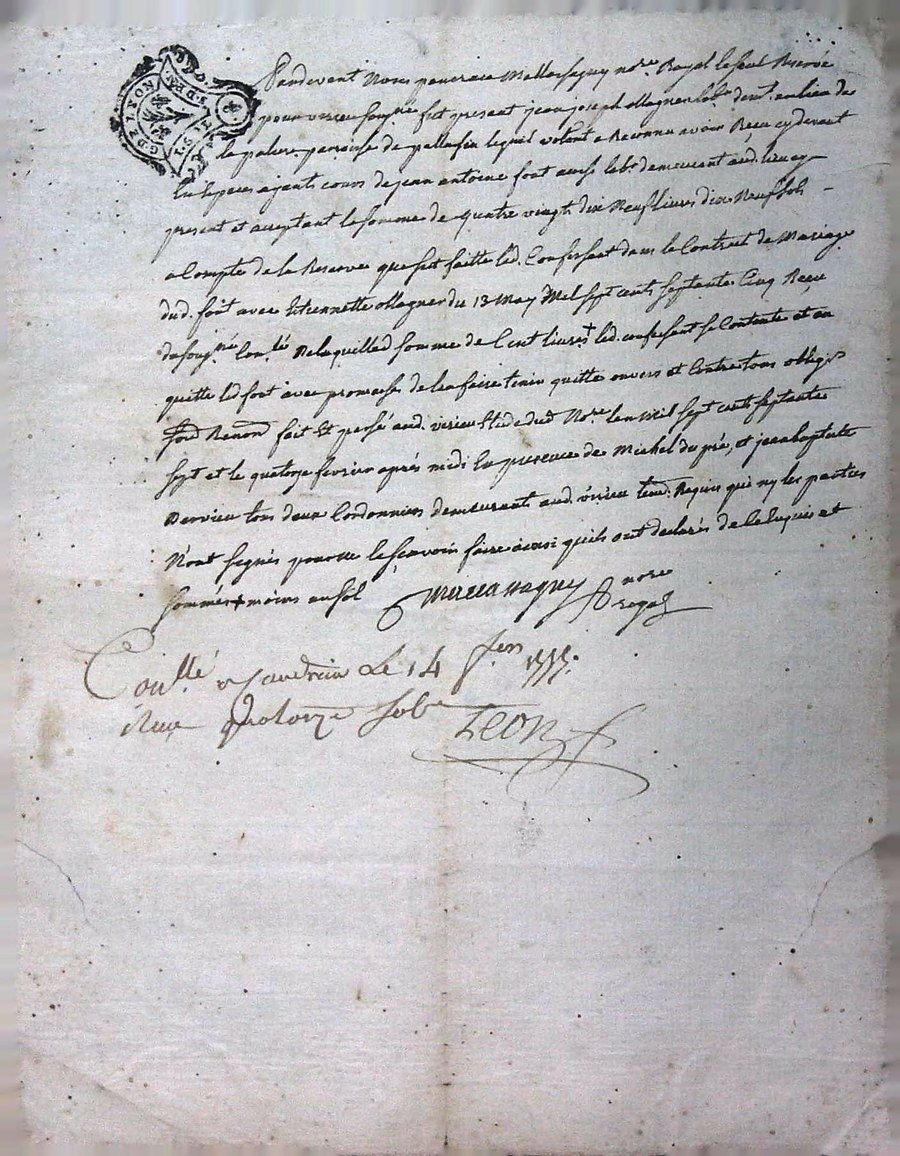 G. DE LYON
Pardevant Nous pancrace Mallassagny nore. Royal le seul Reservé
pour virieu soug.né fut present jean joseph Magnen lab. deme.t au lieu de
la palure paroisse de pallafin lequel volont. a Reconnu avoir Receu cydevant
En Especes ayants cours de jean antoine fort aussi lab. demeurant aud. lieu cy
present et acceptant la somme de quatre vingts dix Neuf livres dix Neuf sols
a Compte de la Reserve que fut faitte led. Confessant dans le Contract de Mariage
dud. fort avec Etiennette Magnen du 13 May Mil sept cents septante Cinq Receu
du soug.né Con.lé De laquelled. somme de Cent livres + led. confessant se Contente et en
quitte led. fort avec promesse de len faire tenir quitte envers et Contre tous oblig.s
Renon. fait et passé aud. virieu Etude dud. No.re lan mil sept cents septante
sept et le quatorze fevrier après midi En presence de Michel dupré, et jean baptiste
Dervieu tous deux Cordonniers demeurants aud. virieu tem. Requis qui ny les parties
N'ont signés pour ne le sçavoir faire ainsi quils ont declarés de ce Enquis et
sommés + moins un sol
nore
royal
Con.llé a Le 14 fer 1777.
Receu Quatorze sols
LEON